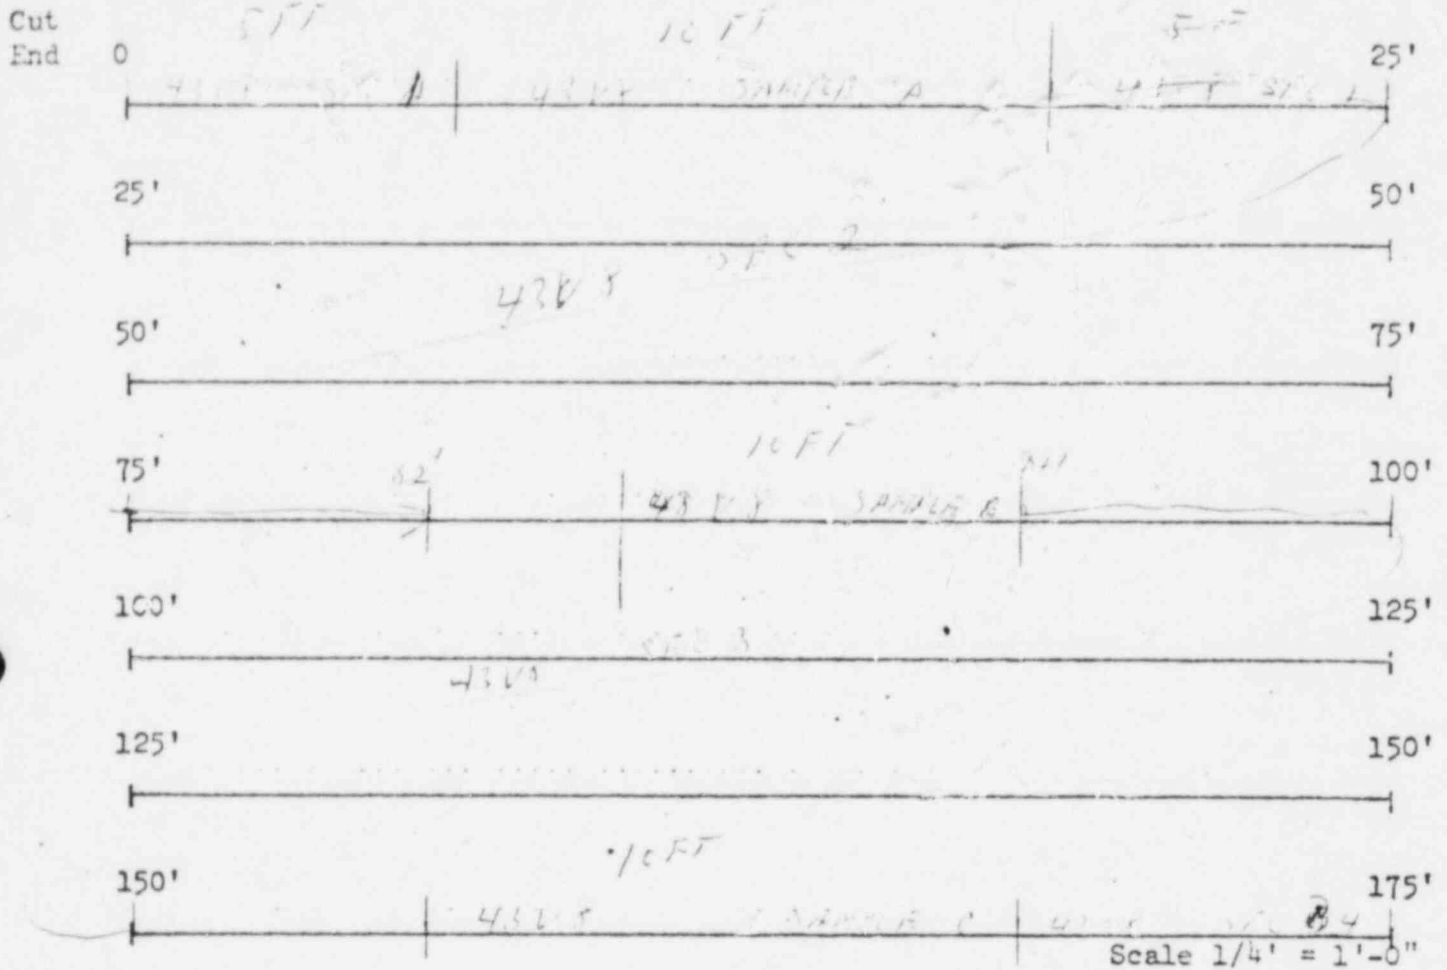 Cut
End 0 25'
5 FT 10 FT 5 FT
43V8 SAMPLE A
25' 50'
SPC 2
43V8
50' 75'
10 FT
75' 82' 100'
43V8 SAMPLE B
100' 125'
43V8
125' 150'
10 FT
150' 175'
43V8 SAMPLE C 4
Scale 1/4' = 1'-0"